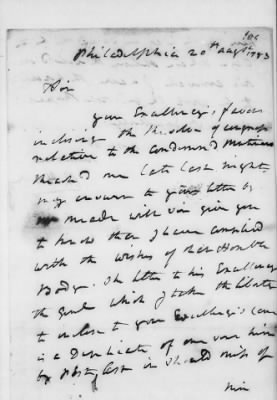 Philadelphia 20th augst 1783
Sir
your Excellency's favor
inclosing the Resolve of Congress
relative to the condemned Mutineers
reach'd me late last night,
my answer to your letter by
Mr Meade will give you
to know that I have complied
with the wishes of that Honble
Body. The letter to his Excellency
the Genl which I take the liberty
to inclose to your Excellency's care
is a Duplicate of one sent him
by Post, lest in should miss of
him